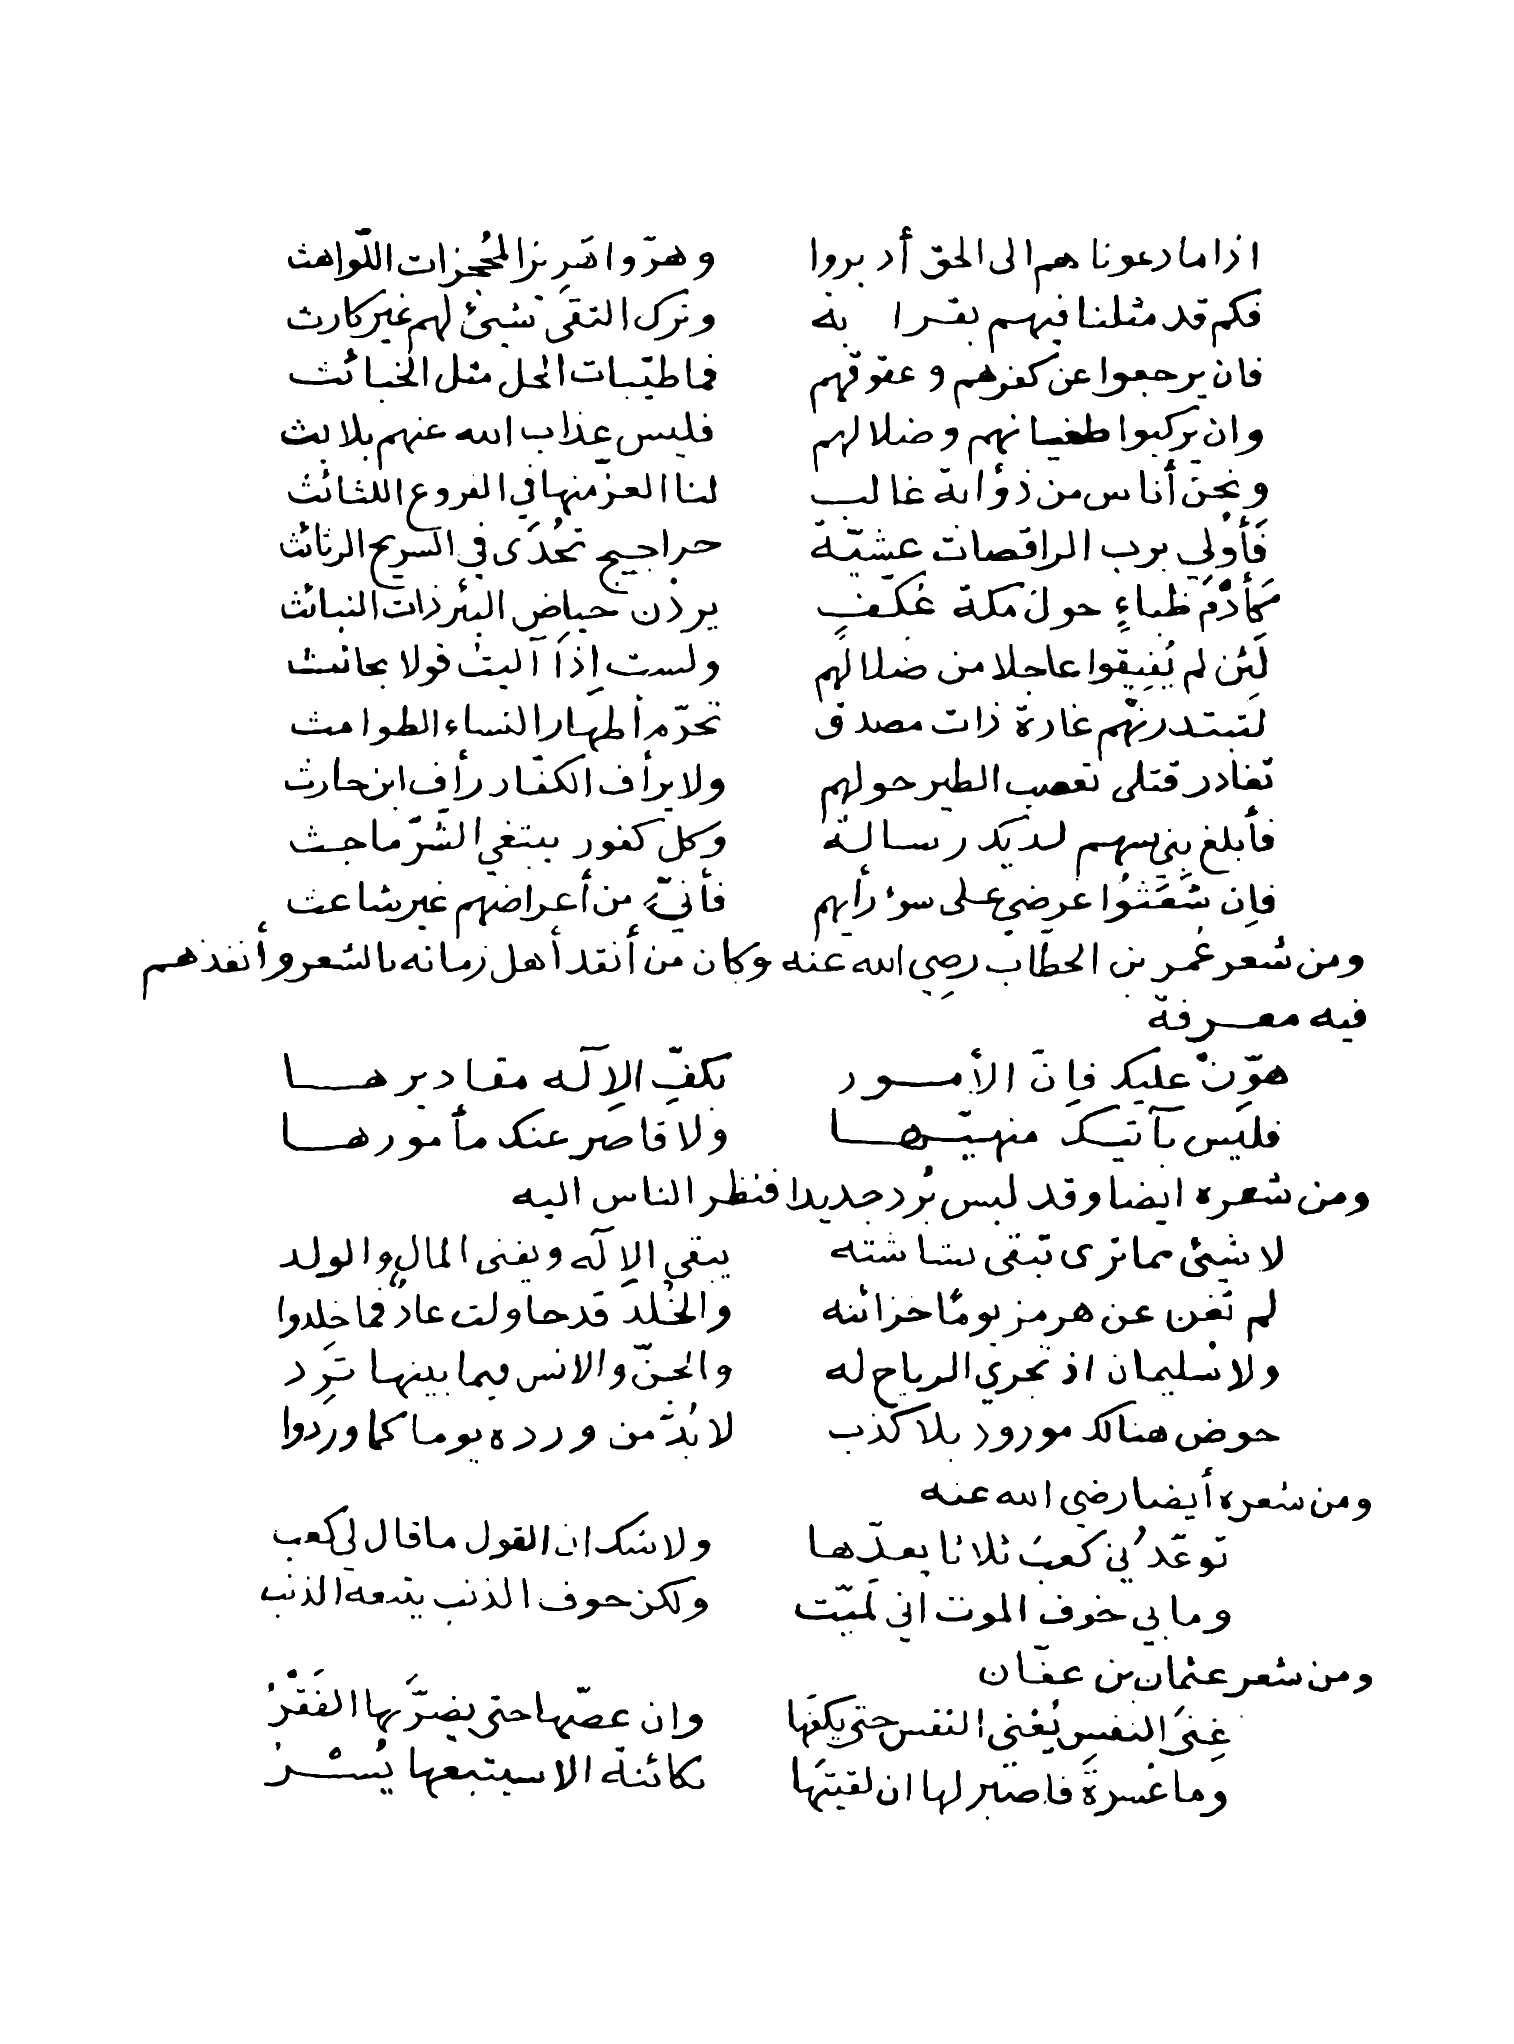 اذا ما دعوناهم الى الحق أدبروا وهرّوا هَرِيرَ المُحجِزات اللّواهث
فكم قد مثلنا فيهم بقرابة وترك التقى شيئ لهم غير كارث
فان يرجعوا عن كفرهم وعقوقهم فما طيّبات الحل مثل الخبائث
وان يركبوا طغيانهم وضلالهم فليس عذاب الله عنهم بلابث
ونحن أناس من ذؤابة غالب لنا العزّ منها في الفروع اللثائث
فَأُولِي برب الراقصات عشيّة حراجيج تُحْدَى في السريح الرثائث
كَأُدْمِ ظباءٍ حول مكة عُكّفٍ يردْن حياض البئر ذات النبائث
لَئن لم يُفيقوا عاجلا من ضلالهم ولست إذا آليت قولا بحانث
لتبتدرنّهم غارة ذات مصدق تحرّم أطهار النساء الطوامث
تغادر قتلى تعصب الطير حولهم ولا يرأف الكفّار رأف ابن حارث
فأبلغ بني سهم لديك رسالة وكل كفور يبتغي الشّرّ ماحث
فإن شَعَثُوا عرضي على سوء رأيهم فأنيّ من أعراضهم غير شاعث
ومن شعر عُمر بن الخطّاب رضي الله عنه وكان من أنقد أهل زمانه بالشعر وأنفذهم
فيه معرفة
هوّنْ عليك فإنّ الأمور بكفّ الإله مقاديرها
فليس بآتيك منهيّها ولا قاصر عنك مأمورها
ومن شعره ايضا وقد لبس بُرد جديدا فنظر الناس اليه
لا شيئ مما ترى تبقى بشاشته يبقي الإله ويفنى المال والولد
لم تغن عن هرمز يومًا خزائنه والخُلد قد حاولت عادٌ فما خلدوا
ولا سليمان اذ تجري الرياح له والجنّ والانس فيما بينها تَرِد
حوض هنالك مورود بلا كذب لا بُدّ من ورده يوما كما وردوا
ومن شعره أيضا رضي الله عنه
توعّدُني كعبٌ ثلاثا يعدّها ولا شك ان القول ما قال لي كعب
وما بي خوف الموت اني لميّت ولكن خوف الذنب يتبعه الذنب
ومن شعر عثمان بن عفّان
غِنىَ النفسِ يُغني النفس حتى يكفّها وان عضّها حتى يضرَّ بها الفَقْرُ
وما عُسرةٌ فاصبر لها ان لقيتَها بكائنة الا سيتبعها يُسْرُ